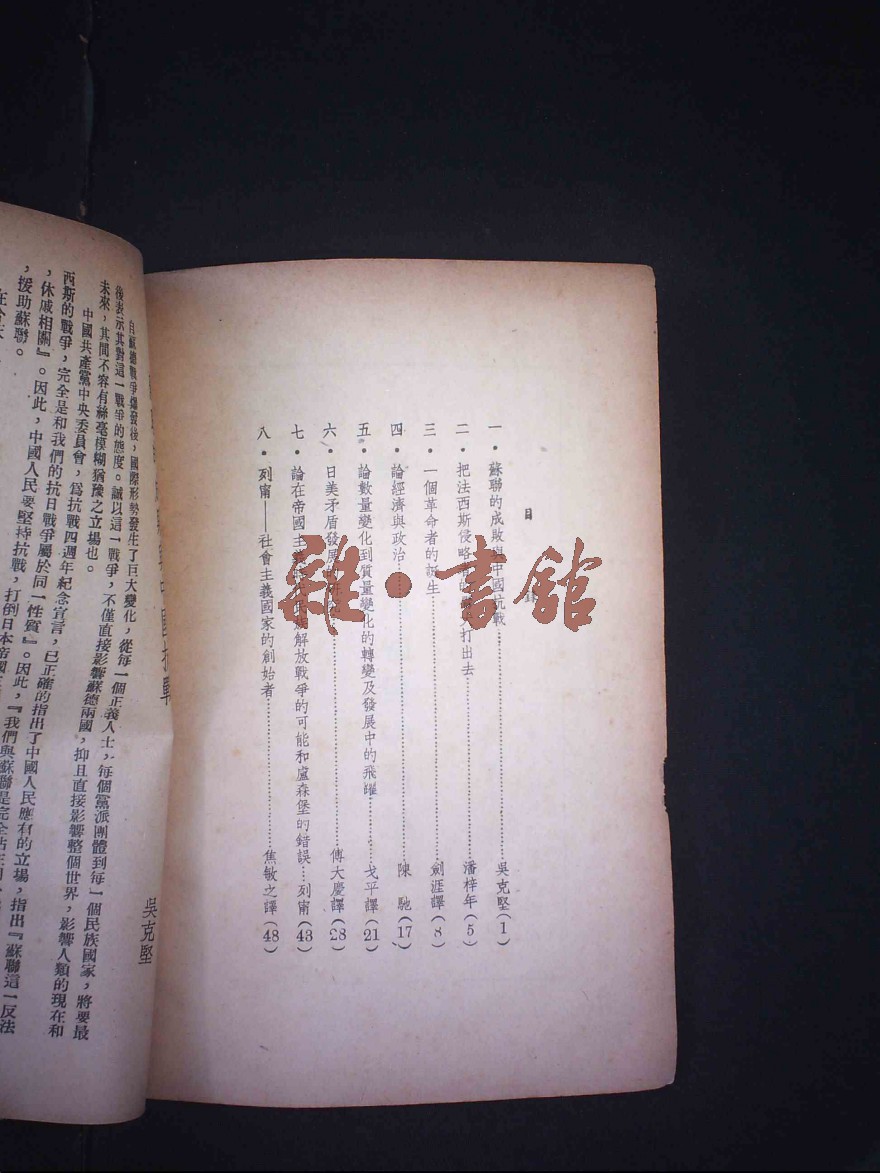 目
一・蘇聯的成敗與中國抗戰……吳克堅(1)
二・把法西斯侵略打出去……潘梓年(5)
三・一個革命者的誕生……劍涯譯(8)
四・論經濟與政治……陳 馳(17)
五・論數量變化到質量變化的轉變及發展中的飛躍……戈平譯(21)
六・日美矛盾發展……傅大慶譯(28)
七・論在帝國主義民族解放戰爭的可能和盧森堡的錯誤……列甯(43)
八・列甯——社會主義國家的創始者……焦敏之譯(48)
雜・書館
中國抗戰
吳克堅
自蘇德戰爭爆發後,國際形勢發生了巨大變化,從每一個正義人士,每個黨派團體到每一個民族國家,將要最
後表示其對這一戰爭的態度。誠以這一戰爭,不僅直接影響蘇德兩國,抑且直接影響整個世界,影響人類的現在和
未來,其間不容有絲毫模糊猶豫之立場也。
中國共產黨中央委員會,爲抗戰四週年紀念宣言,已正確的指出了中國人民應有的立場,指出『蘇聯這一反法
西斯的戰爭,完全是和我們的抗日戰爭屬於同一性質』。因此,『我們與蘇聯是完全站在
,休戚相關』。因此,中國人民要堅持抗戰,打倒日本帝國
,援助蘇聯。